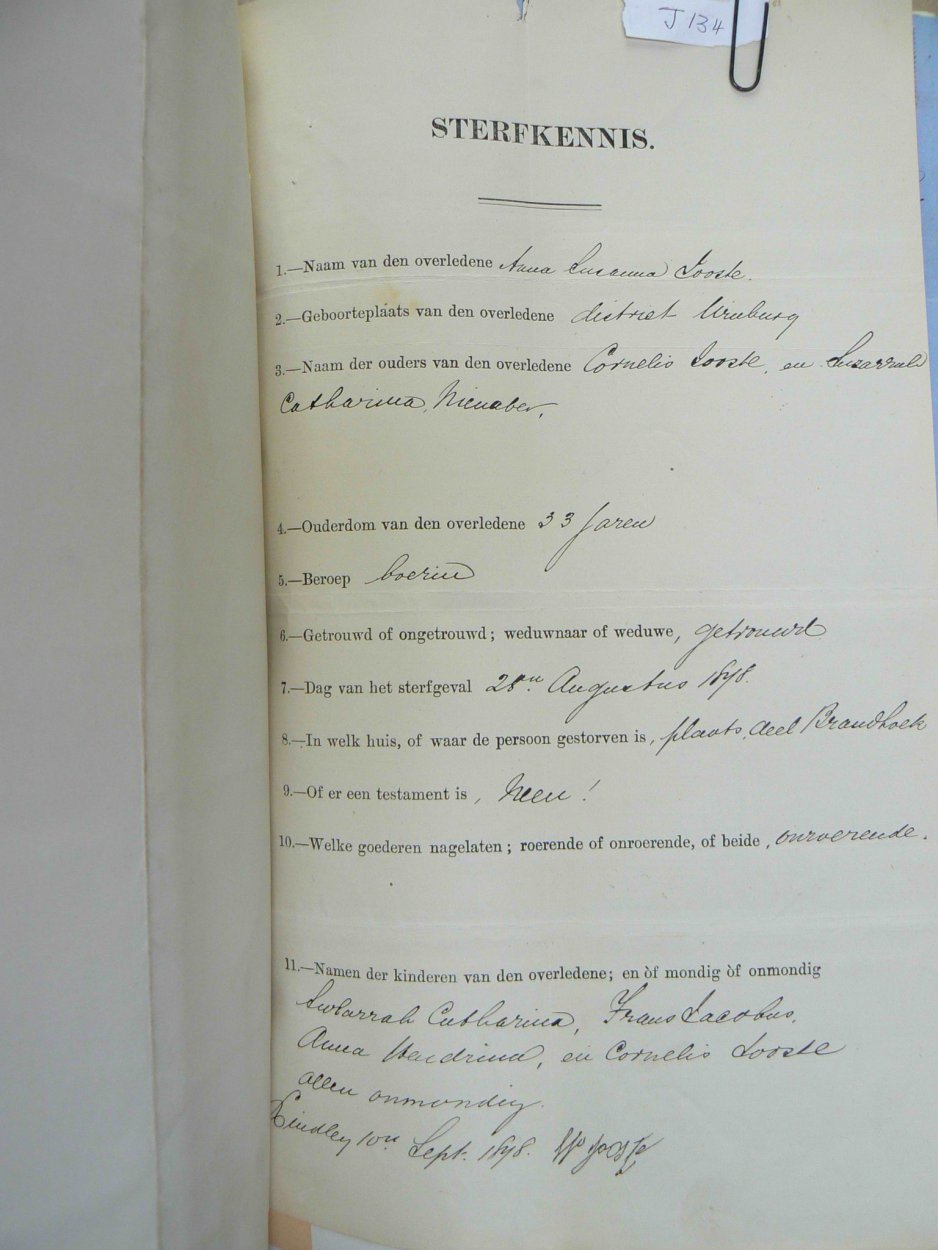 J 134
STERFKENNIS.
1.—Naam van den overledene Anna Susanna Jooste.
2.—Geboorteplaats van den overledene district Winburg
3.—Naam der ouders van den overledene Cornelis Jooste, en
Catharina, Nienaber,
4.—Ouderdom van den overledene 33 Jaren
5.—Beroep boerin
6.—Getrouwd of ongetrouwd; weduwnaar of weduwe, getrouwd
7.—Dag van het sterfgeval 28en Augustus 1898.
8.—In welk huis, of waar de persoon gestorven is, plaats, deel Brandhoek
9.—Of er een testament is, Neen!
10.—Welke goederen nagelaten; roerende of onroerende, of beide, onroerende.
11.—Namen der kinderen van den overledene; en òf mondig òf onmondig
Catharina, Frans Jacobus,
Anna Hendrina, en Cornelis Jooste
allen onmondig.
Lindley 10en Sept. 1898. Jooste